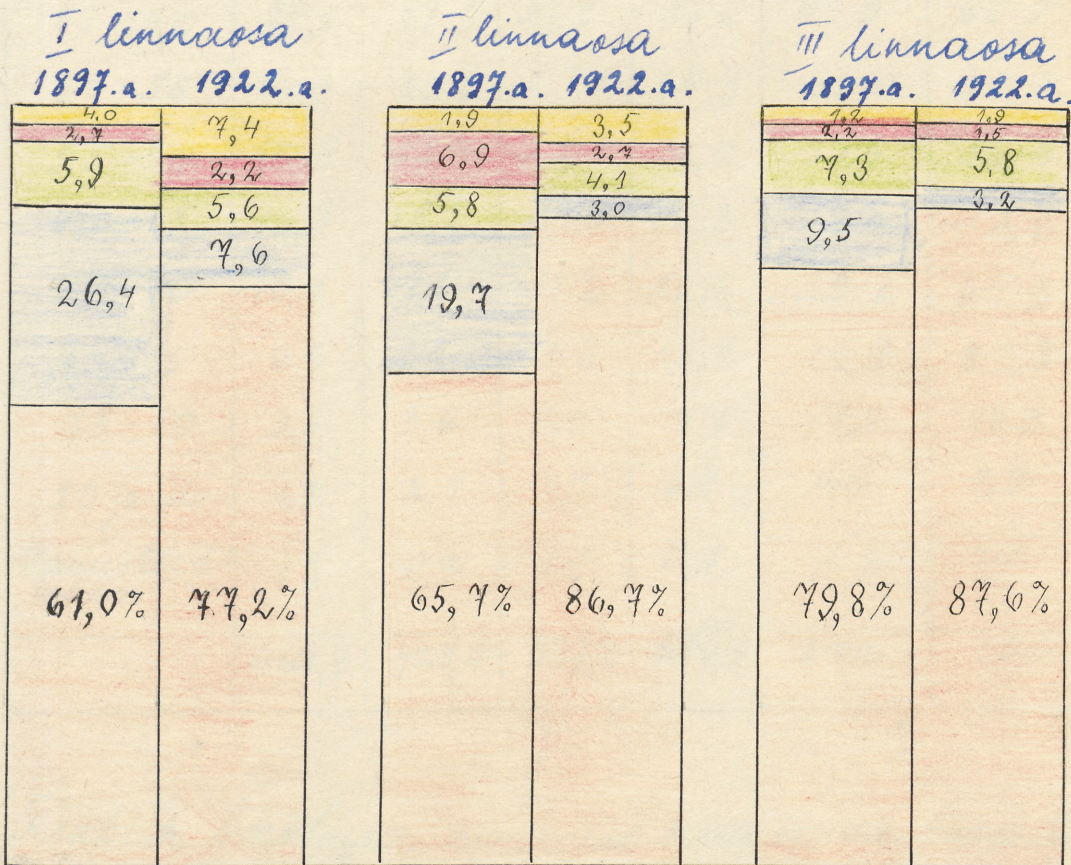 I linnaosa
1897.a. 1922.a.
4,0
2,7
5,9
26,4
61,0%
7,4
2,2
5,6
7,6
77,2%
II linnaosa
1897.a. 1922.a.
1,9
6,9
5,8
19,7
65,7%
3,5
2,7
4,1
3,0
86,7%
III linnaosa
1897.a. 1922.a.
1,2
2,2
7,3
9,5
79,8%
1,9
1,5
5,8
3,2
87,6%